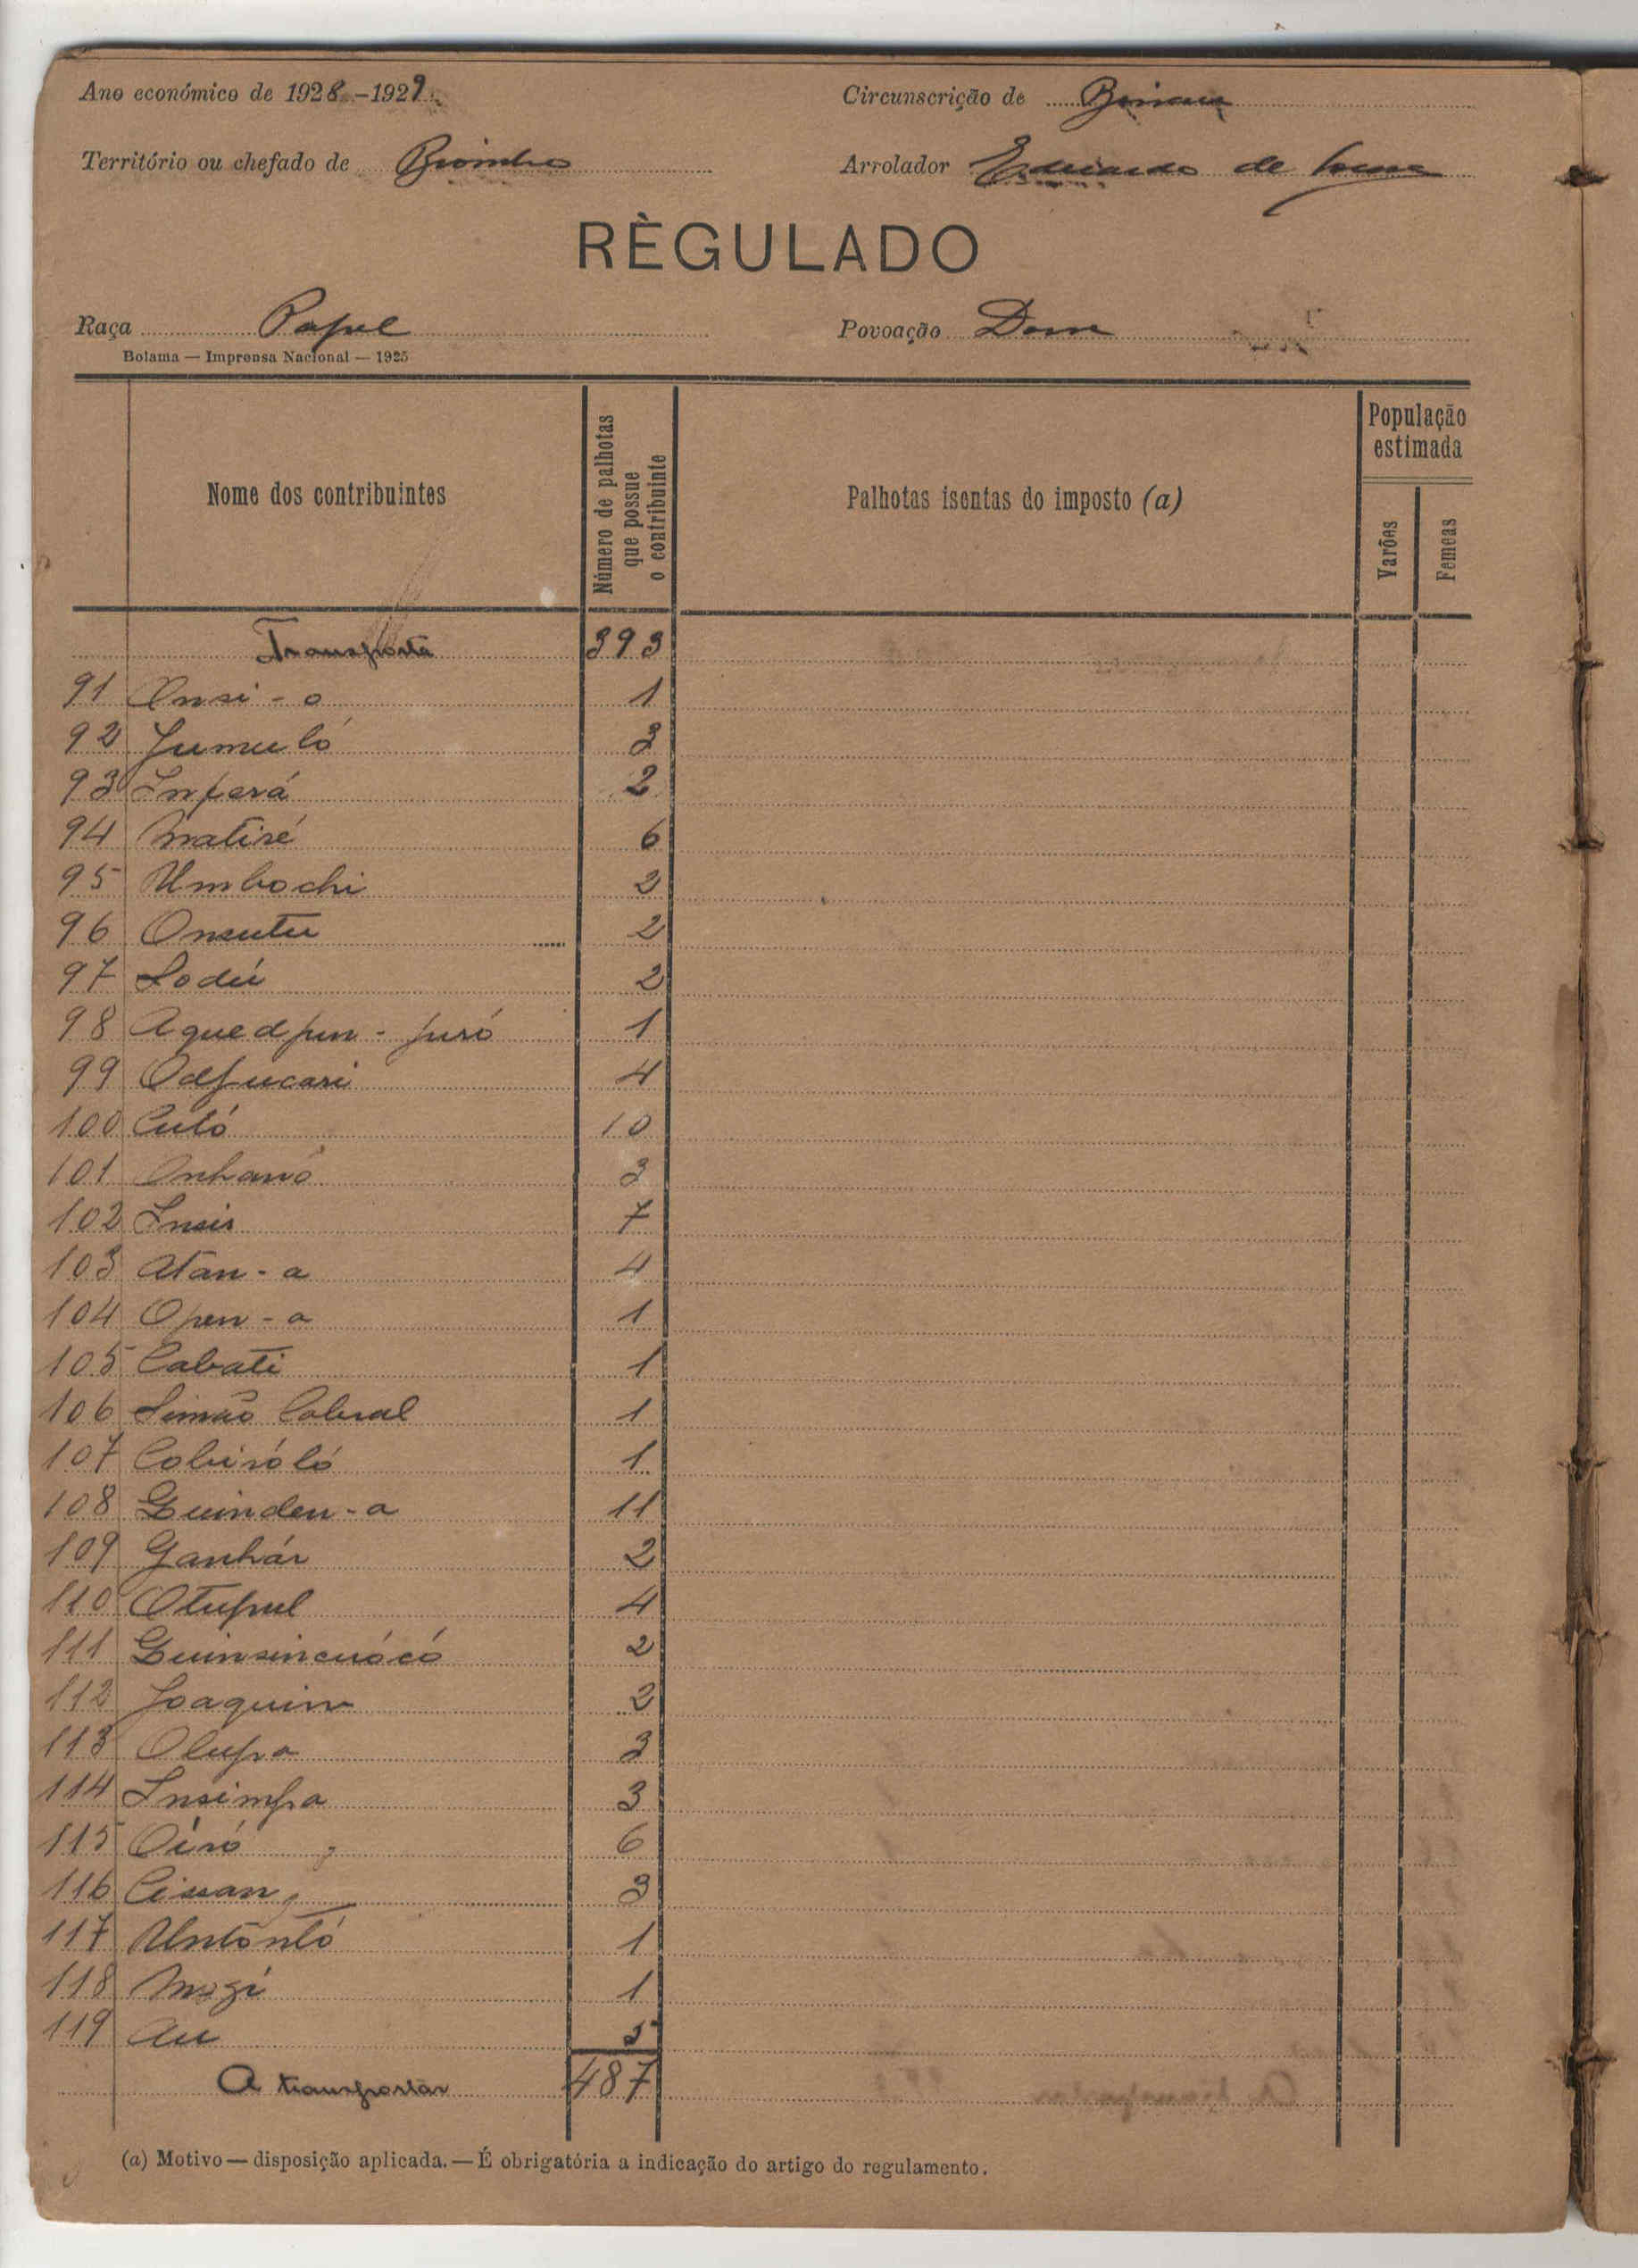 Ano económico de 1928-1929
Circunscrição de
Território ou chefado de Biombo
Arrolador Eduardo de
RÈGULADO
Raça Papel
Povoação Dom
Bolama — Imprensa Nacional — 1925
Nome dos contribuintes
Número de palhotas que possue o contribuinte
Palhotas isentas do imposto (a)
População estimada
Varões
Femeas
Transporte 393
91 Onsi - o 1
92 Jumuló 3
93 Inferá 2
94 Matiré 6
95 Umbochi 2
96 Onsutu 2
97 Lodú 2
98 Aquedpun - juró 1
99 Odjucari 4
100 Cutó 10
101 Onhanó 3
102 Insis 7
103 Atan - a 4
104 Open - a 1
105 Cabati 1
106 Simão Cabral 1
107 Cobiróló 1
108 Guinden - a 11
109 Ganhár 2
110 Otupul 4
111 Guinsincuócó 2
112 Joaquim 2
113 Olupa 3
114 Insimpa 3
115 Oiró 6
116 Cissan 3
117 Untontó 1
118 Mozi 1
119 Au 5
A transportar 487
(a) Motivo — disposição aplicada. — É obrigatória a indicação do artigo do regulamento.